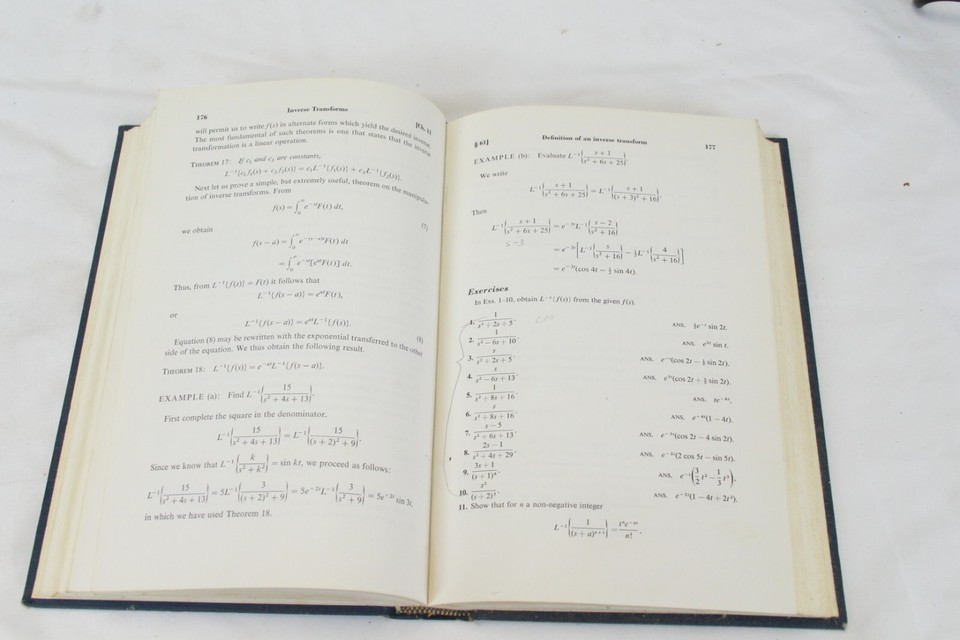 176
Inverse Transforms
[Ch. 11
will permit us to write f(s) in alternate forms which yield the desired inverse.
The most fundamental of such theorems is one that states that the inverse
transformation is a linear operation.
THEOREM 17: If c₁ and c₂ are constants,
L⁻¹{c₁f₁(s) + c₂f₂(s)} = c₁L⁻¹{f₁(s)} + c₂L⁻¹{f₂(s)}.
Next let us prove a simple, but extremely useful, theorem on the manipula-
tion of inverse transforms. From
f(s) = ∫₀^∞ e^(-st)F(t) dt, (7)
we obtain
f(s − a) = ∫₀^∞ e^(-(s-a)t)F(t) dt
= ∫₀^∞ e^(-st)[e^(at)F(t)] dt.
Thus, from L⁻¹{f(s)} = F(t) it follows that
L⁻¹{f(s − a)} = e^(at)F(t),
or
L⁻¹{f(s − a)} = e^(at)L⁻¹{f(s)}. (8)
Equation (8) may be rewritten with the exponential transferred to the other
side of the equation. We thus obtain the following result.
THEOREM 18: L⁻¹{f(s)} = e^(-at)L⁻¹{f(s − a)}.
EXAMPLE (a): Find L⁻¹{15/(s² + 4s + 13)}.
First complete the square in the denominator.
L⁻¹{15/(s² + 4s + 13)} = L⁻¹{15/((s + 2)² + 9)}.
Since we know that L⁻¹{k/(s² + k²)} = sin kt, we proceed as follows:
L⁻¹{15/(s² + 4s + 13)} = 5L⁻¹{3/((s + 2)² + 9)} = 5e^(-2t)L⁻¹{3/(s² + 9)} = 5e^(-2t) sin 3t,
in which we have used Theorem 18.
§ 61]
Definition of an inverse transform
177
EXAMPLE (b): Evaluate L⁻¹{(s + 1)/(s² + 6s + 25)}.
We write
L⁻¹{(s + 1)/(s² + 6s + 25)} = L⁻¹{(s + 1)/((s + 3)² + 16)}.
Then
L⁻¹{(s + 1)/(s² + 6s + 25)} = e^(-3t)L⁻¹{(s − 2)/(s² + 16)}
s -3
= e^(-3t)[L⁻¹{s/(s² + 16)} − ½L⁻¹{4/(s² + 16)}]
= e^(-3t)(cos 4t − ½ sin 4t).
Exercises
In Exs. 1–10, obtain L⁻¹{f(s)} from the given f(s).
1. 1/(s² + 2s + 5). ANS. ½e^(-t) sin 2t.
2. 1/(s² − 6s + 10). ANS. e^(3t) sin t.
3. s/(s² + 2s + 5). ANS. e^(-t)(cos 2t − ½ sin 2t).
4. s/(s² − 6s + 13). ANS. e^(3t)(cos 2t + 3/2 sin 2t).
5. 1/(s² + 8s + 16). ANS. te^(-4t).
6. s/(s² + 8s + 16). ANS. e^(-4t)(1 − 4t).
7. (s − 5)/(s² + 6s + 13). ANS. e^(-3t)(cos 2t − 4 sin 2t).
8. (2s − 1)/(s² + 4s + 29). ANS. e^(-2t)(2 cos 5t − sin 5t).
9. (3s + 1)/(s + 1)⁴. ANS. e^(-t)(3/2 t² − 1/3 t³).
10. s²/(s + 2)³. ANS. e^(-2t)(1 − 4t + 2t²).
11. Show that for n a non-negative integer
L⁻¹{1/(s + a)^(n+1)} = tⁿe^(-at)/n!.